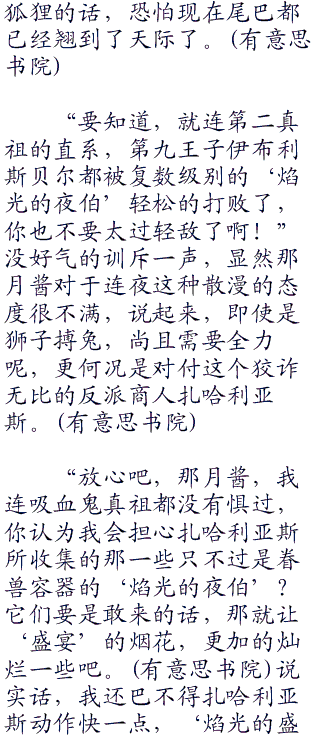 狐狸的话，恐怕现在尾巴都
已经翘到了天际了。(有意思
书院)
“要知道，就连第二真
祖的直系，第九王子伊布利
斯贝尔都被复数级别的‘焰
光的夜伯’轻松的打败了，
你也不要太过轻敌了啊！”
没好气的训斥一声，显然那
月酱对于连夜这种散漫的态
度很不满，说起来，即使是
狮子搏兔，尚且需要全力
呢，更何况是对付这个狡诈
无比的反派商人扎哈利亚
斯。(有意思书院)
“放心吧，那月酱，我
连吸血鬼真祖都没有惧过，
你认为我会担心扎哈利亚斯
所收集的那一些只不过是眷
兽容器的‘焰光的夜伯’？
它们要是敢来的话，那就让
‘盛宴’的烟花，更加的灿
烂一些吧。(有意思书院)说
实话，我还巴不得扎哈利亚
斯动作快一点，‘焰光的盛